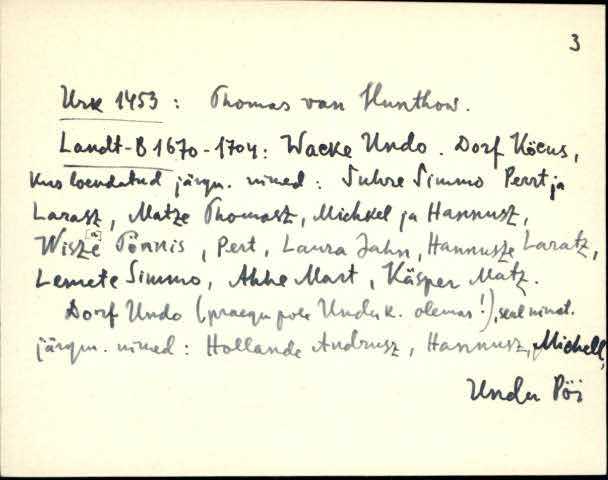 3
Urk 1453 : Thomas van Hunthow.
Landt-B 1670-1704: Wacke Undo. Dorf Köcus,
kus loendatud järgn. nimed : Suhre Simmo Perrt ja
Larasz, Matze Thomasz, Michkel ja Hannusz,
Wisze Pönnis, Pert, Laura Jahn, Hannusze Laratz,
Lemete Simmo, Ahhe Mart, Käsper Matz.
Dorf Undo (praegu pole Undu k. olemas!), seal nimet.
järgm. nimed : Hollande Andrusz, Hannusz, Michell,
Undu Pöi